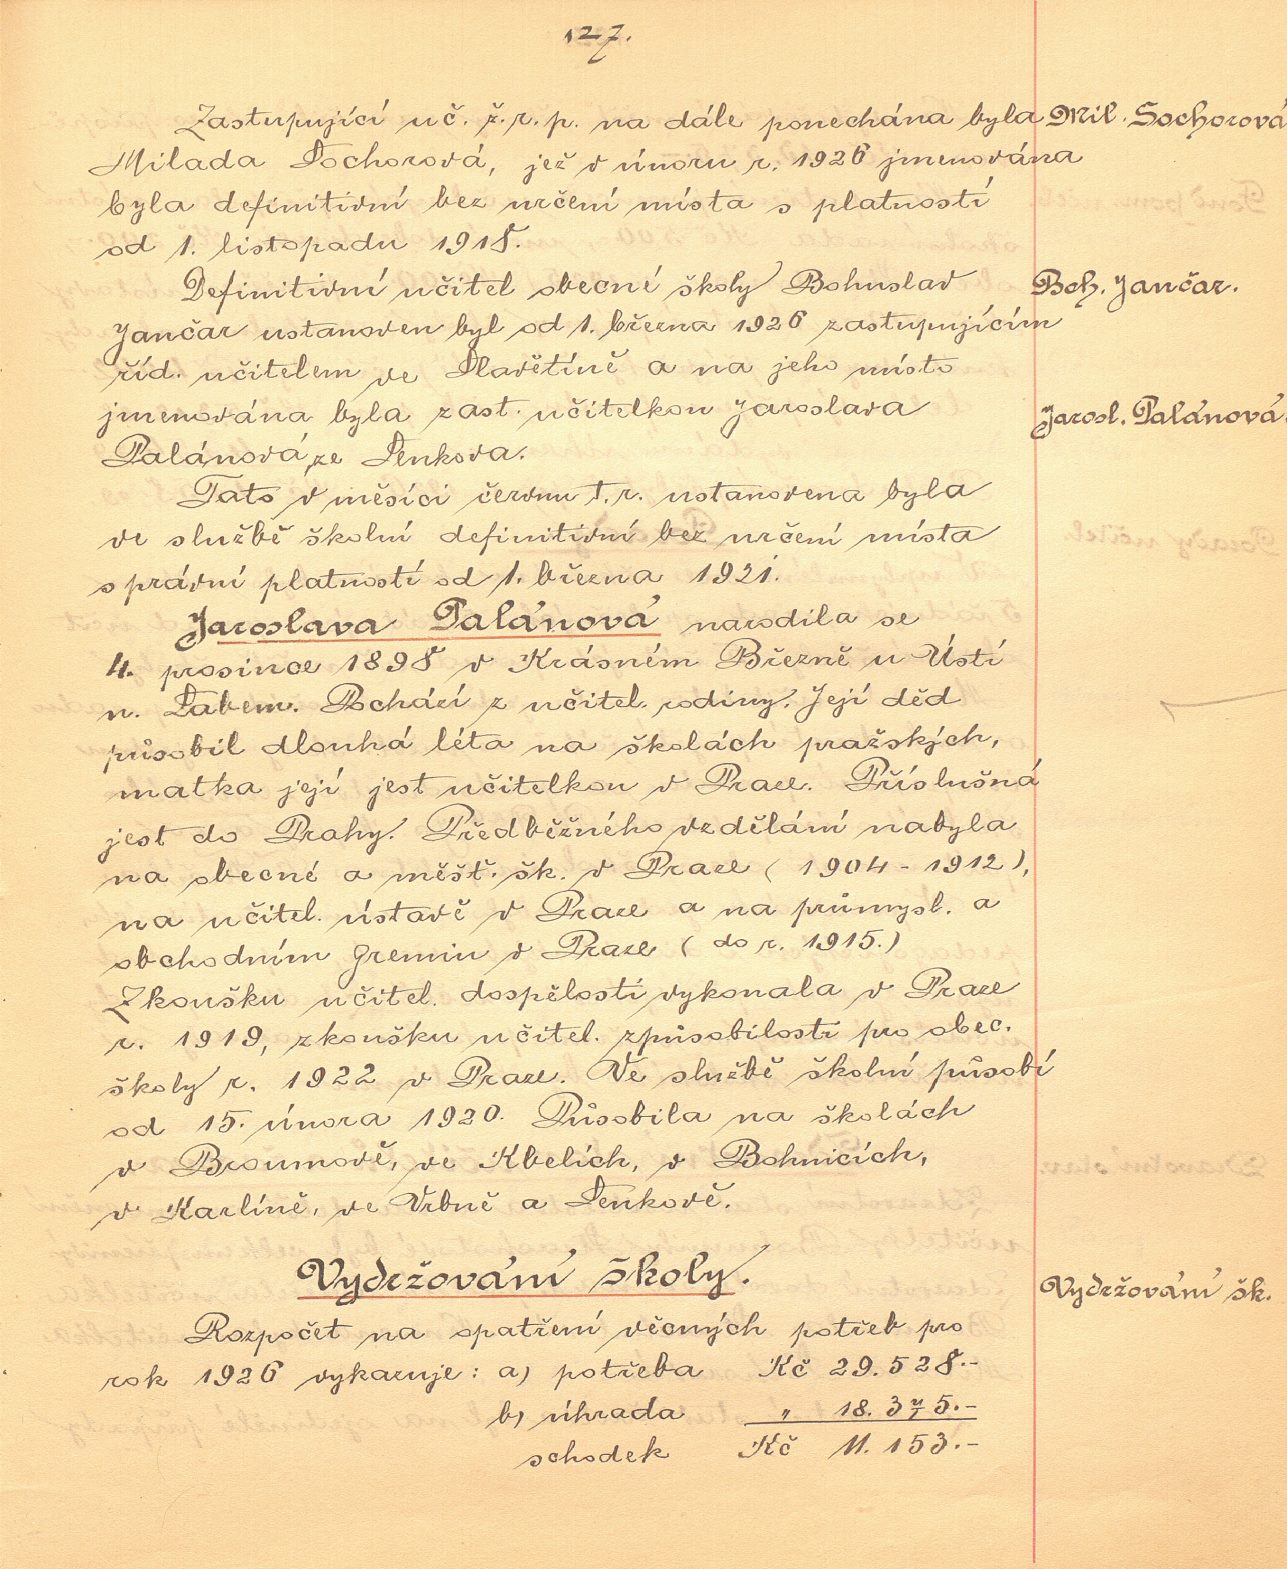 127.
Zastupující uč. ž. r. p. na dále ponechána byla Mil. Sochorová
Milada Sochorová, jež v únoru r. 1926 jmenována
byla definitivní bez určení místa s platností
od 1. listopadu 1918.
Definitivní učitel obecné školy Bohuslav Boh. Jančar.
Jančar ustanoven byl od 1. března 1926 zastupujícím
říd. učitelem ve Slavětíně a na jeho místo
jmenována byla zast. učitelkou Jaroslava Jarosl. Palánová.
Palánová ze Senkova.
Tato v měsíci červnu t. r. ustanovena byla
ve službě školní definitivní bez určení místa
s právní platností od 1. března 1921.
Jaroslava Palánová narodila se
4. prosince 1898 v Krásném Březně u Ústí
n. Labem. Pochází z učitel. rodiny. Její děd
působil dlouhá léta na školách pražských,
matka její jest učitelkou v Praze. Příslušná
jest do Prahy. Předběžného vzdělání nabyla
na obecné a měšť. šk. v Praze (1904 - 1912),
na učitel. ústavě v Praze a na průmysl. a
obchodním Gremiu v Praze (do r. 1915.)
Zkoušku učitel. dospělosti vykonala v Praze
r. 1919, zkoušku učitel. způsobilosti pro obec.
školy r. 1922 v Praze. Ve službě školní působí
od 15. února 1920. Působila na školách
v Broumově, ve Kbelích, v Bohnicích,
v Karlíně, ve Vrbně a Senkově.
Vydržování školy. Vydržování šk.
Rozpočet na opatření věcných potřeb pro
rok 1926 vykazuje: a) potřeba Kč 29.528.-
b) úhrada „ 18.375.-
schodek Kč 11.153.-